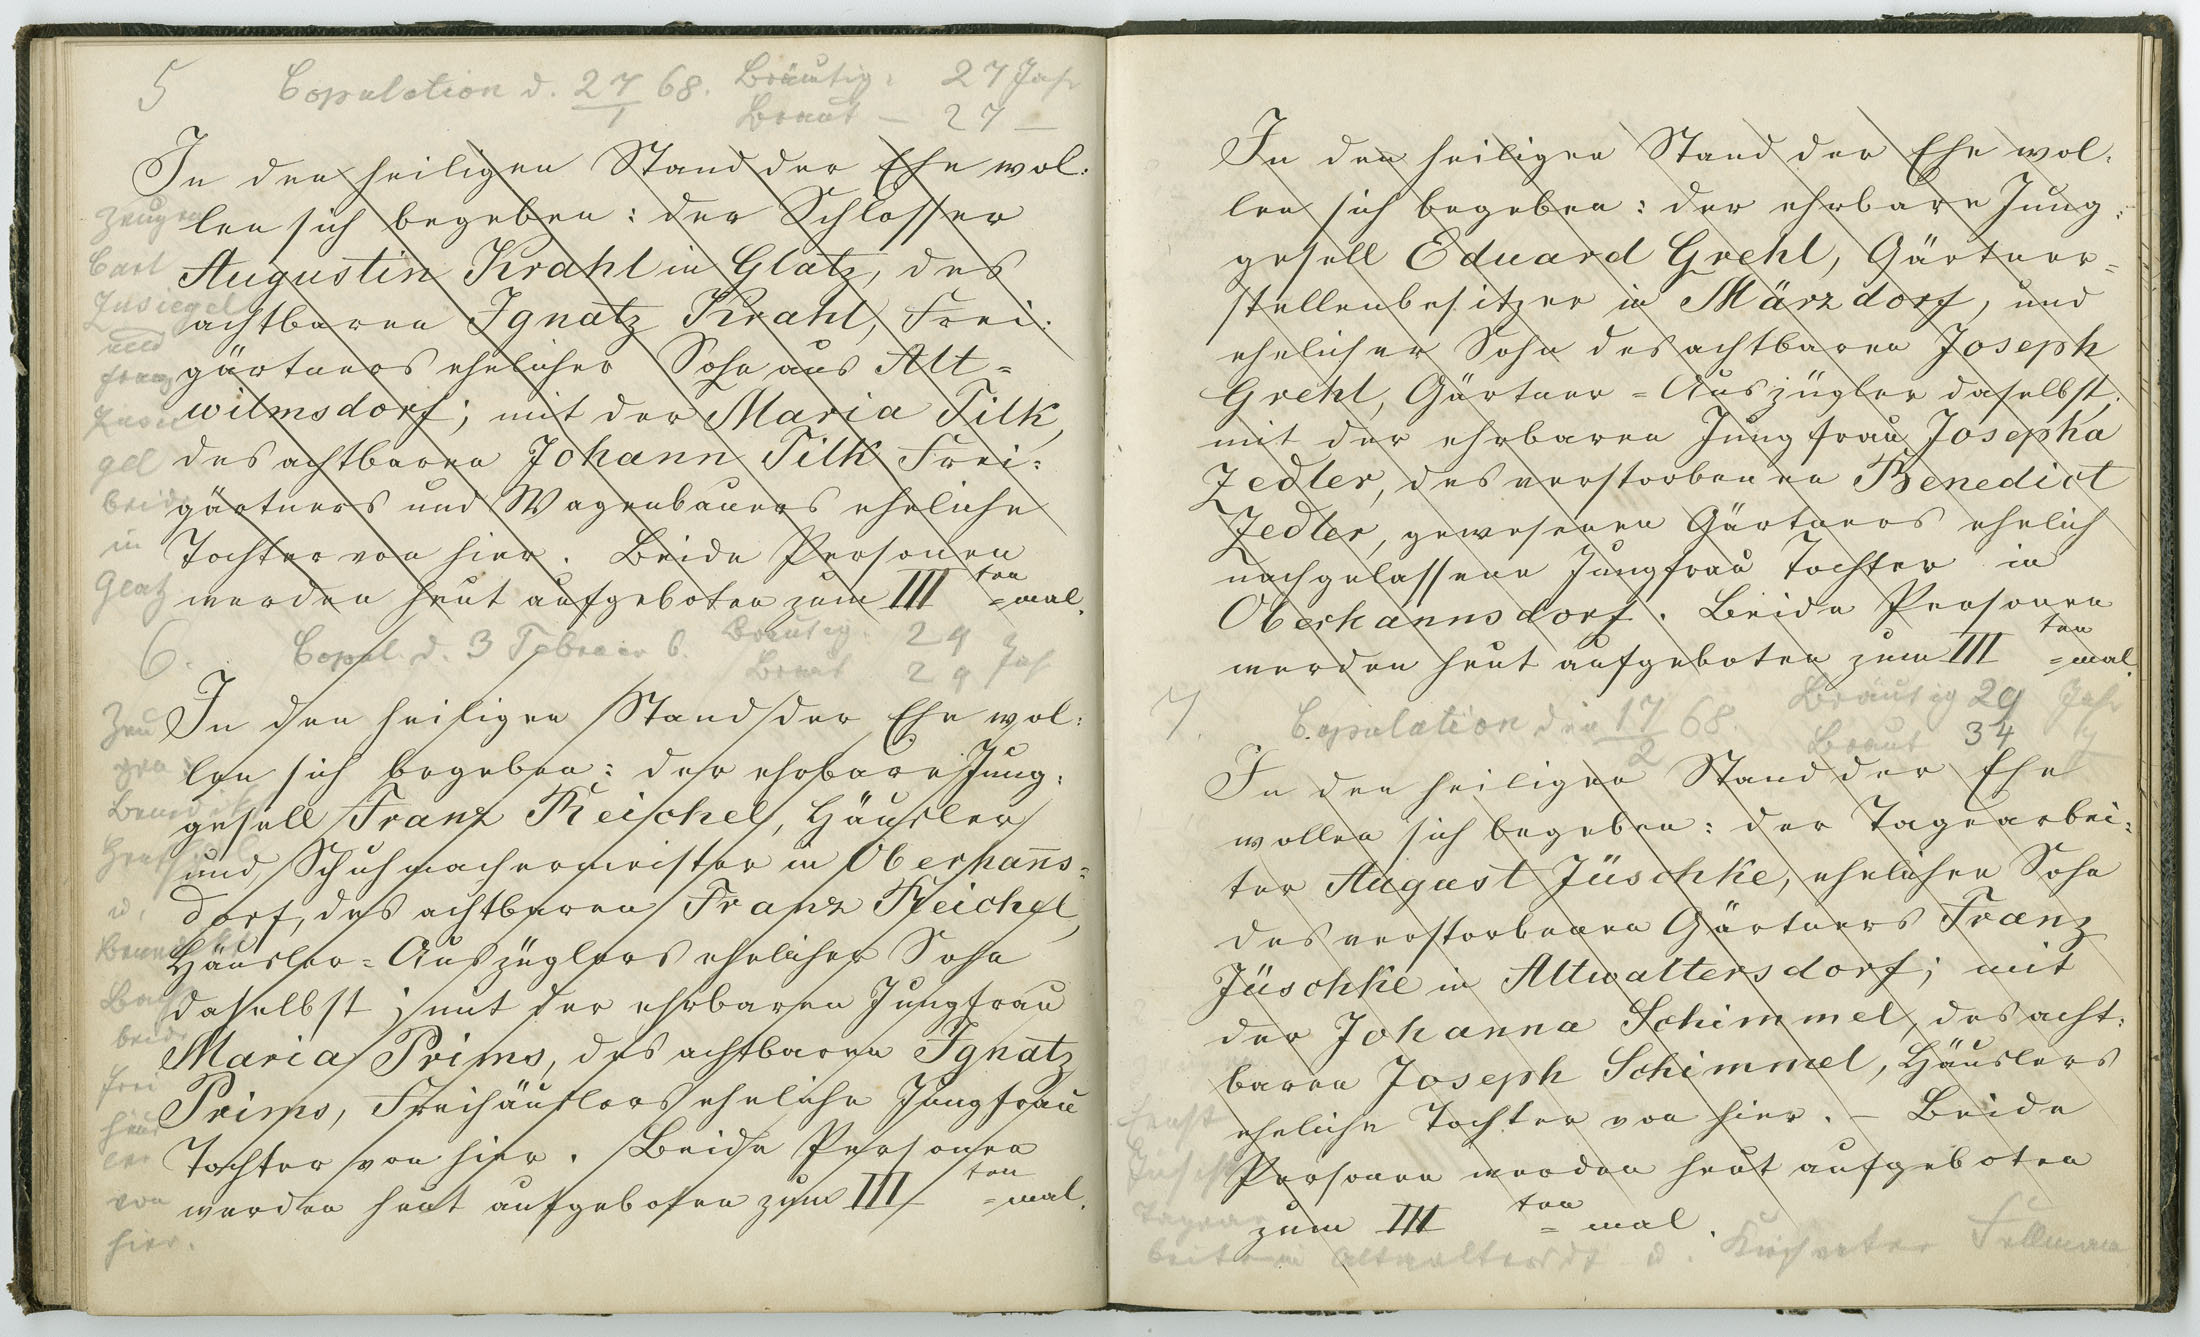 5 Copulation d. 27/1 68. Bräutig: 27 Jahr
Braut – 27 –
In den heiligen Stand der Ehe wol:
len sich begeben: der Schlosser
Augustin Krahl in Glatz, des
achtbaren Ignatz Krahl, Frei:
gärtners ehelicher Sohn aus Alt=
wilmsdorf; mit der Maria Tilk,
des achtbaren Johann Tilk Frei:
gärtners und Wagenbauers eheliche
Tochter von hier. Beide Personen
werden heut aufgeboten zum III ten =mal.
Zeugen
Carl
Insiegel
und
Franz
Insie
gel
beide
in
Glatz
6. Copul. d. 3 Februar 6. Bräutig. 29 Jahr
Braut 29 Jahr
In den heiligen Stand der Ehe wol:
len sich begeben: der ehrbare Jung:
gesell Franz Reichel, Häusler
und Schuhmachermeister in Oberhan̄s=
dorf, des achtbaren Franz Reichel,
Häusler=Auszüglers ehelicher Sohn
daselbst; mit der ehrbaren Jungfrau
Maria Prims, des achtbaren Ignatz
Prims, Freihäuslers eheliche Jungfrau
Tochter von hier. Beide Personen
werden heut aufgeboten zum III ten =mal.
Zeu
gen
u.
beide
frei
häus
ler
von
hier.
In den heiligen Stand der Ehe wol:
len sich begeben: der ehrbare Jung:
gesell Eduard Grehl, Gärtner=
stellenbesitzer in Märzdorf, und
ehelicher Sohn des achtbaren Joseph
Grehl, Gärtner=Auszügler daselbst,
mit der ehrbaren Jungfrau Josepha
Zedler, des verstorbenen Benedict
Zedler, gewesenen Gärtners ehelich
nachgelassene Jungfrau Tochter in
Oberhannsdorf. Beide Personen
werden heut aufgeboten zum III ten =mal.
7. Copulation den 17/2 68. Bräutig 29 Jahr
Braut 34
In den heiligen Stand der Ehe
wollen sich begeben: der Tagearbei:
ter August Jüschke, ehelicher Sohn
des verstorbenen Gärtners Franz
Jüschke in Altwaltersdorf; mit
der Johanna Schimmel, des acht:
baren Joseph Schimmel, Häuslers
eheliche Tochter von hier. – Beide
Personen werden heut aufgeboten
zum III ten =mal.
Ernst
Jüschke
Tagear
beiter in Altwaltersdf u. Kirchvater Fellmann